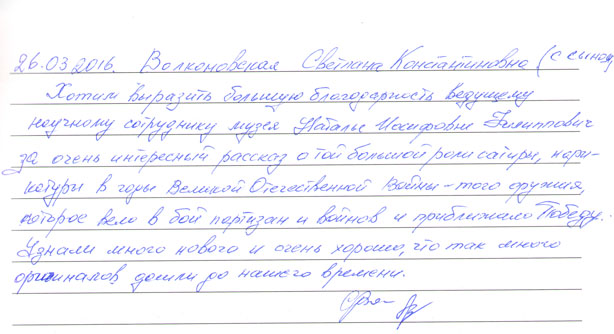 26.03.2016. Волконовская Светлана Константиновна (с сыном)
Хотим выразить большую благодарность ведущему
научному сотруднику музея Наталье Иосифовне Филиппович
за очень интересный рассказ о той большой роли сатиры, кари-
катуры в годы Великой Отечественной Войны – того оружия,
которое вело в бой партизан и воинов и приближало Победу.
Узнали много нового и очень хорошо, что так много
оригиналов дошли до нашего времени.